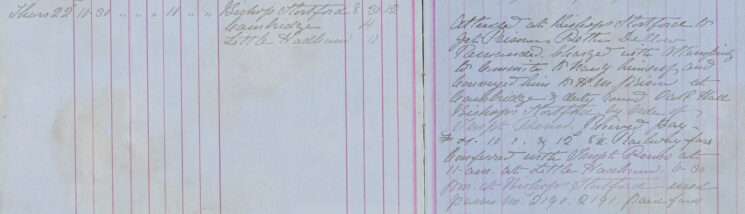 Thurs 22 10-30 " " " 10 " " Bishops Stortford 8 30 12
Cambridge 4
Little Hadham 11
Attended at Bishops Stortford to
get Prisoner Dellow
Remanded. Charged with Attempting
to Commite to hang himself and
Conveyed him to H.M. prison at
Cambridge & duty round Oak Hall
Bishops Stortford by Order of
Supt. Recived Pay
£4. 10 & 12 Railway fare
Conferred with Supt at
11 a.m. at Little Hadham 6-30
p.m. at Bishops Stortford used
passes No. 2190. 2191. paid fare